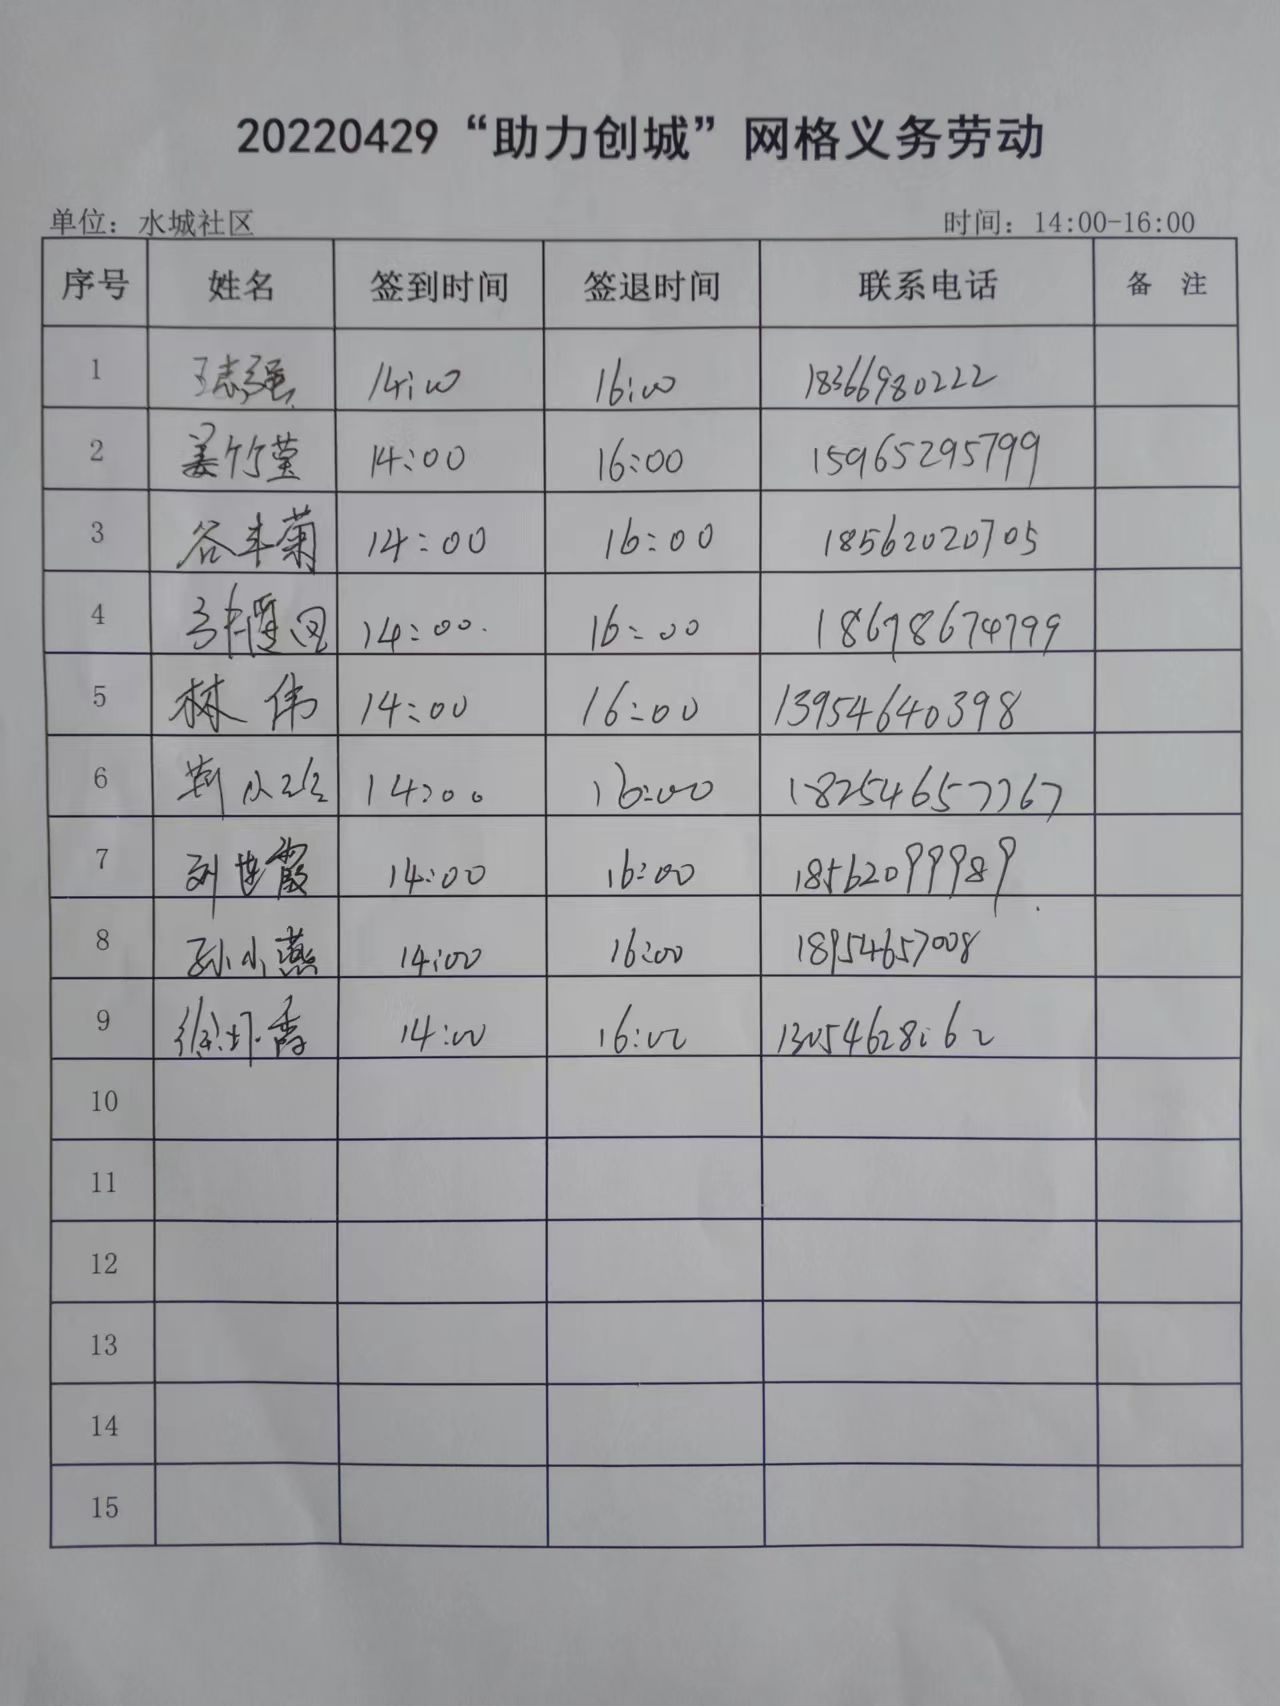 20220429“助力创城”网格义务劳动
单位：水城社区 时间：14:00-16:00
序号 姓名 签到时间 签退时间 联系电话 备 注
1 王志强 14:00 16:00 18366980222
2 姜竹莹 14:00 16:00 15965295799
3 谷丰菊 14:00 16:00 18562020705
4 14:00 16:00 18678674799
5 林伟 14:00 16:00 13954640398
6 14:00 16:00 18254657767
7 刘莲霞 14:00 16:00 18562099989
8 孙小燕 14:00 16:00 18954657008
9 14:00 16:00
10
11
12
13
14
15